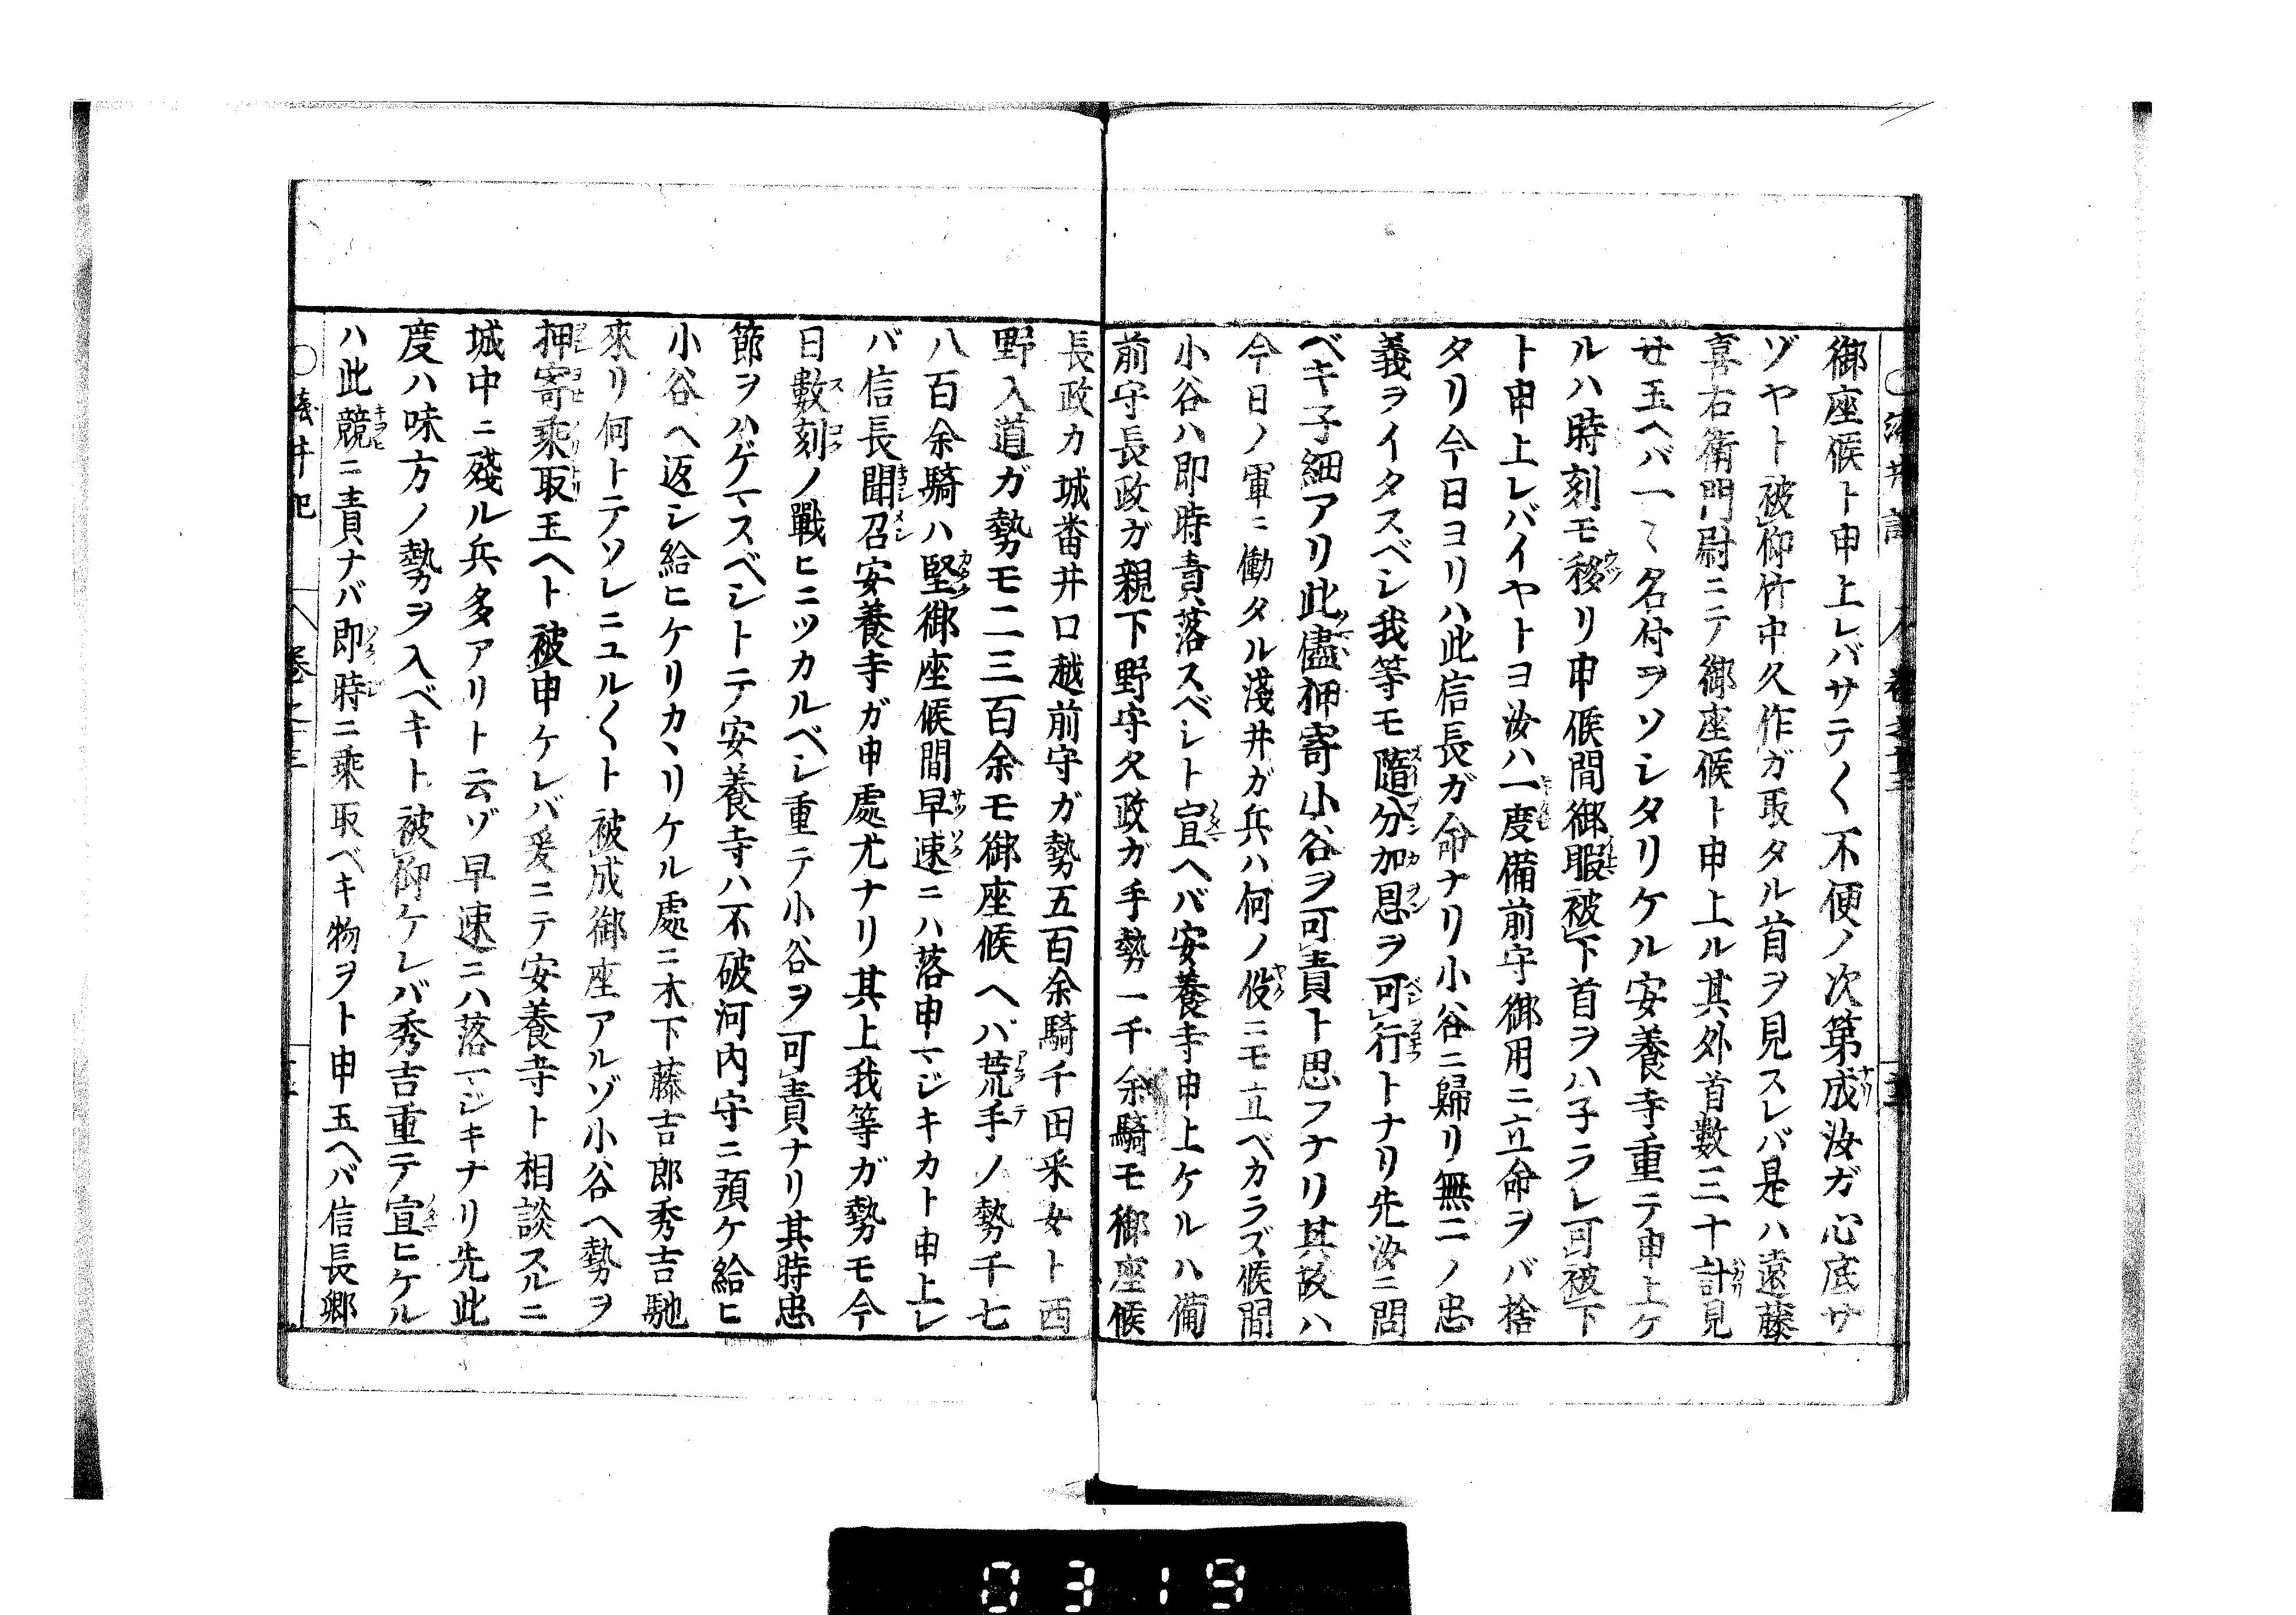 御座候ト申上レバサテ〱不便ノ次第成汝ガ心底サ
ゾヤト被仰竹中久作ガ取タル首ヲ見スレバ是ハ遠藤
喜右衛門尉ニテ御座候ト申上ル其外首数三十計見
せ玉ヘバ一〻名付ヲソシタリケル安養寺重テ申上ケ
ルハ時刻モ移リ申候間御暇被下首ヲハ子ラレ可被下
ト申上レバイヤトヨ汝ハ一度備前守御用ニ立命ヲバ捨
タリ今日ヨリハ此信長ガ命ナリ小谷ニ歸リ無二ノ忠
義ヲイタスベシ我等モ隨分加恩ヲ可行トナリ先汝ニ問
ベキ子細アリ此儘押寄小谷ヲ可責ト思フナリ其故ハ
今日ノ軍ニ働タル淺井ガ兵ハ何ノ役ニモ立ベカラズ候間
小谷ハ即時責落スベレト宣ヘバ安養寺申上ケルハ備
前守長政ガ親下野守久政ガ手勢一千余騎モ御座候
長政カ城番井口越前守ガ勢五百余騎千田采女ト西
野入道ガ勢モ二三百余モ御座候ヘバ荒手ノ勢千七
八百余騎ハ堅御座候間早速ニハ落申マジキカト申上レ
バ信長聞召安養寺ガ申處尤ナリ其上我等ガ勢モ今
日數刻ノ戰ヒニツカルベレ重テ小谷ヲ可責ナリ其時忠
節ヲハゲマスベシトテ安養寺ハ不破河内守ニ預ケ給ヒ
小谷ヘ返シ給ヒケリカヽリケル處ニ木下藤吉郎秀吉馳
來リ何トテソレニユル〱ト被成御座アルゾ小谷ヘ勢ヲ
押寄乘取玉ヘト被申ケレバ爰ニテ安養寺ト相談スルニ
城中ニ殘ル兵多アリト云ゾ早速ニハ落マジキナリ先此
度ハ味方ノ勢ヲ入ベキト被仰ケレバ秀吉重テ宣ヒケル
ハ此競ニ責ナバ即時ニ乘取ベキ物ヲト申玉ヘバ信長郷
0319